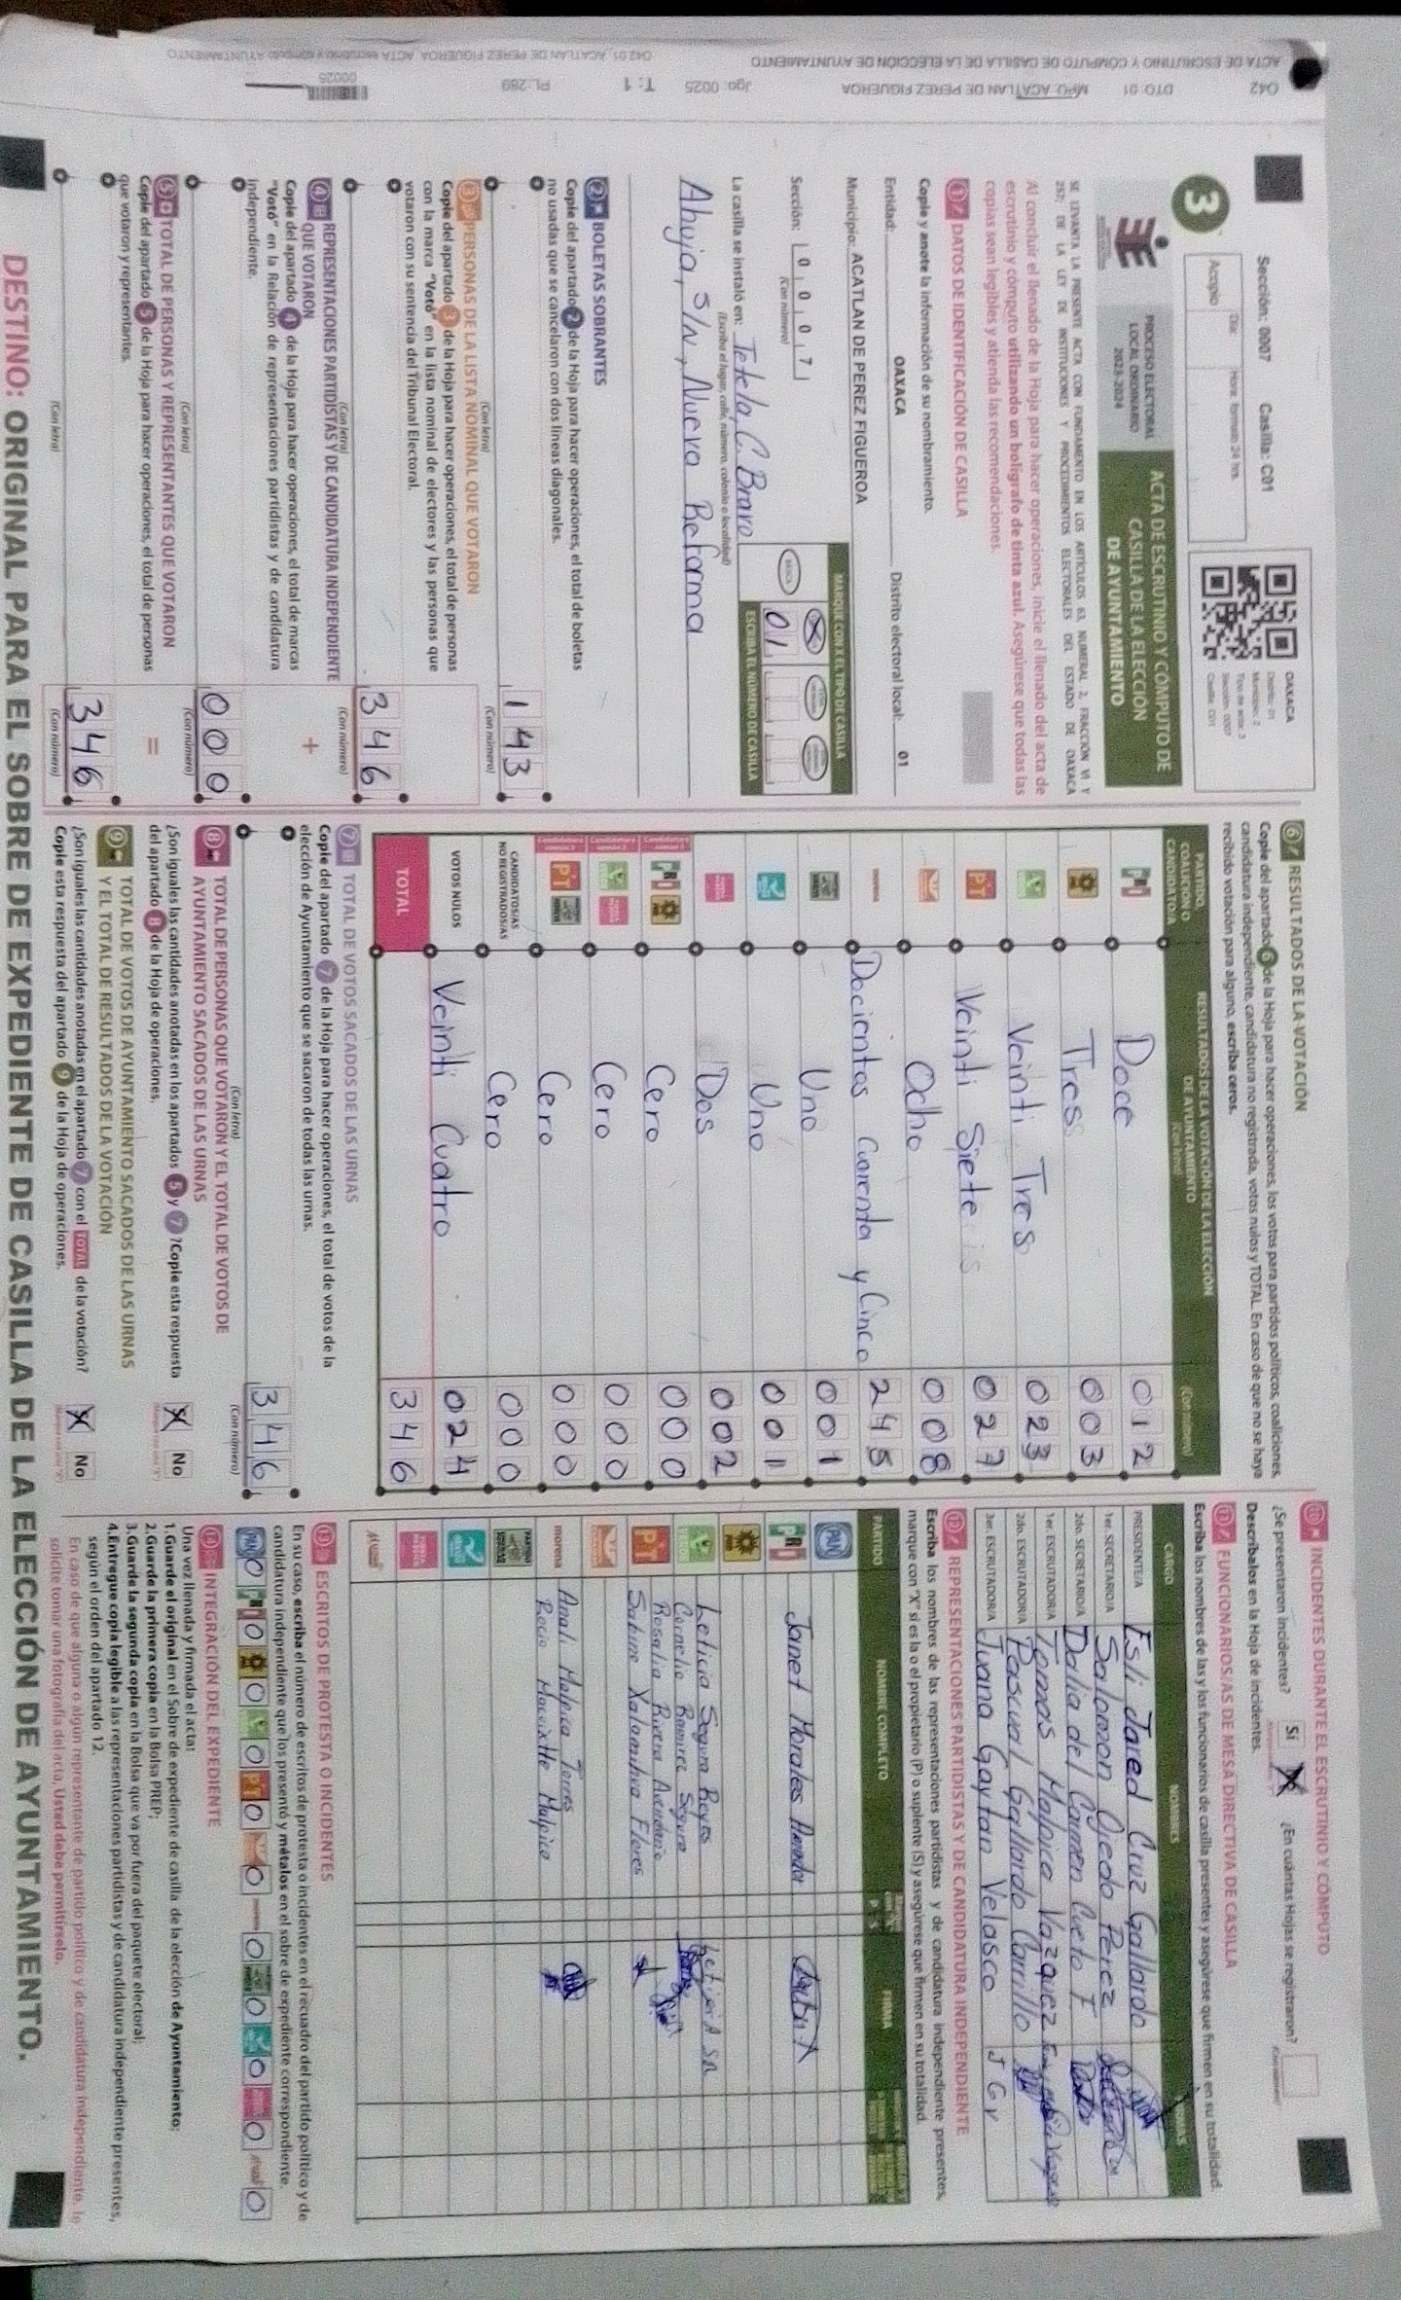 042 DTO: 01 MPO: ACATLAN DE PEREZ FIGUEROA Jgo: 0025 T: 1 PL: 289 00025
ACTA DE ESCRUTINIO Y CÓMPUTO DE CASILLA DE LA ELECCIÓN DE AYUNTAMIENTO
Sección: 0007 Casilla: C01
Día: Hora: formato 24 hrs.
Acopio
3
OAXACA
PROCESO ELECTORAL
LOCAL ORDINARIO
2023-2024
ACTA DE ESCRUTINIO Y CÓMPUTO DE
CASILLA DE LA ELECCIÓN
DE AYUNTAMIENTO
SE LEVANTA LA PRESENTE ACTA CON FUNDAMENTO EN LOS ARTÍCULOS 63, NUMERAL 2, FRACCIÓN VI Y
257; DE LA LEY DE INSTITUCIONES Y PROCEDIMIENTOS ELECTORALES DEL ESTADO DE OAXACA
Al concluir el llenado de la Hoja para hacer operaciones, inicie el llenado del acta de
escrutinio y cómputo utilizando un bolígrafo de tinta azul. Asegúrese que todas las
copias sean legibles y atienda las recomendaciones.
1 DATOS DE IDENTIFICACIÓN DE CASILLA
Copie y anote la información de su nombramiento.
Entidad: OAXACA Distrito electoral local: 01
Municipio: ACATLAN DE PEREZ FIGUEROA
Sección: 0 0 0 7
(Con número)
MARQUE CON X EL TIPO DE CASILLA
BÁSICA
X
01
ESCRIBA EL NÚMERO DE CASILLA
La casilla se instaló en: Tetela, C. Bravo
(Escriba el lugar, calle, número, colonia o localidad)
Ahuja, S/N, Nueva Reforma
2 BOLETAS SOBRANTES
Copie del apartado 2 de la Hoja para hacer operaciones, el total de boletas
no usadas que se cancelaron con dos líneas diagonales.
143
(Con letra) (Con número)
3 PERSONAS DE LA LISTA NOMINAL QUE VOTARON
Copie del apartado 3 de la Hoja para hacer operaciones, el total de personas
con la marca "Votó" en la lista nominal de electores y las personas que
votaron con su sentencia del Tribunal Electoral.
346
(Con letra) (Con número)
4 REPRESENTACIONES PARTIDISTAS Y DE CANDIDATURA INDEPENDIENTE
QUE VOTARON
Copie del apartado 4 de la Hoja para hacer operaciones, el total de marcas
"Votó" en la Relación de representaciones partidistas y de candidatura
independiente.
+
000
(Con letra) (Con número)
5 TOTAL DE PERSONAS Y REPRESENTANTES QUE VOTARON
Copie del apartado 5 de la Hoja para hacer operaciones, el total de personas
que votaron y representantes.
=
346
(Con letra) (Con número)
6 RESULTADOS DE LA VOTACIÓN
Copie del apartado 6 de la Hoja para hacer operaciones, los votos para partidos políticos, coaliciones,
candidatura independiente, candidatura no registrada, votos nulos y TOTAL. En caso de que no se haya
recibido votación para alguno, escriba ceros.
PARTIDO, COALICIÓN O CANDIDATO/A
RESULTADOS DE LA VOTACIÓN DE LA ELECCIÓN DE AYUNTAMIENTO
(Con letra) (Con número)
PRI Doce 012
Tres 003
Veinti Tres 023
PT Veinti Siete 027
Ocho 008
morena Docientos Cuarenta y Cinco 245
Uno 001
Uno 001
Dos 002
Cero 000
Cero 000
PT Cero 000
CANDIDATOS/AS NO REGISTRADOS/AS Cero 000
VOTOS NULOS Veinti Cuatro 024
TOTAL 346
7 TOTAL DE VOTOS SACADOS DE LAS URNAS
Copie del apartado 7 de la Hoja para hacer operaciones, el total de votos de la
elección de Ayuntamiento que se sacaron de todas las urnas.
346
(Con letra) (Con número)
8 TOTAL DE PERSONAS QUE VOTARON Y EL TOTAL DE VOTOS DE
AYUNTAMIENTO SACADOS DE LAS URNAS
¿Son iguales las cantidades anotadas en los apartados 5 y 7 ? Copie esta respuesta
del apartado 8 de la Hoja de operaciones.
X No
9 TOTAL DE VOTOS DE AYUNTAMIENTO SACADOS DE LAS URNAS
Y EL TOTAL DE RESULTADOS DE LA VOTACIÓN
¿Son iguales las cantidades anotadas en el apartado 7 con el TOTAL de la votación?
Copie esta respuesta del apartado 9 de la Hoja de operaciones.
X No
10 INCIDENTES DURANTE EL ESCRUTINIO Y CÓMPUTO
¿Se presentaron incidentes? Sí X ¿En cuántas Hojas se registraron?
Descríbalos en la Hoja de incidentes.
11 FUNCIONARIOS/AS DE MESA DIRECTIVA DE CASILLA
Escriba los nombres de las y los funcionarios de casilla presentes y asegúrese que firmen en su totalidad.
CARGO NOMBRES FIRMAS
PRESIDENTE/A Esli Jared Cruz Gallardo
1er. SECRETARIO/A Salomon Ojeda Perez
2do. SECRETARIO/A Dalia del Carmen Cueto T
1er. ESCRUTADOR/A Tomas Malpica Vazquez
2do. ESCRUTADOR/A Pascual Gallardo Carrillo
3er. ESCRUTADOR/A Juana Gaytan Velasco J G V
12 REPRESENTACIONES PARTIDISTAS Y DE CANDIDATURA INDEPENDIENTE
Escriba los nombres de las representaciones partidistas y de candidatura independiente presentes,
marque con "X" si es la o el propietario (P) o suplente (S) y asegúrese que firmen en su totalidad.
PARTIDO NOMBRE COMPLETO P S FIRMA
PAN
PRI Janet Morales
Leticia Segura Reyes
Cornelio Ramirez Segura
PT Rosalia Rivera
Sabino Xalamihua Flores
morena Anali Malpica Torres
Rocio Macuixtle Malpica
13 ESCRITOS DE PROTESTA O INCIDENTES
En su caso, escriba el número de escritos de protesta o incidentes en el recuadro del partido político y de
candidatura independiente que los presentó y métalos en el sobre de expediente correspondiente.
PAN 0 PRI 0 0 0 PT 0 0 morena 0 0 0 0 0
14 INTEGRACIÓN DEL EXPEDIENTE
Una vez llenada y firmada el acta:
1.Guarde el original en el Sobre de expediente de casilla de la elección de Ayuntamiento;
2.Guarde la primera copia en la Bolsa PREP;
3.Guarde la segunda copia en la Bolsa que va por fuera del paquete electoral;
4.Entregue copia legible a las representaciones partidistas y de candidatura independiente presentes,
según el orden del apartado 12.
En caso de que alguna o algún representante de partido político y de candidatura independiente, lo
solicite tomar una fotografía del acta, Usted debe permitírselo.
DESTINO: ORIGINAL PARA EL SOBRE DE EXPEDIENTE DE CASILLA DE LA ELECCIÓN DE AYUNTAMIENTO.